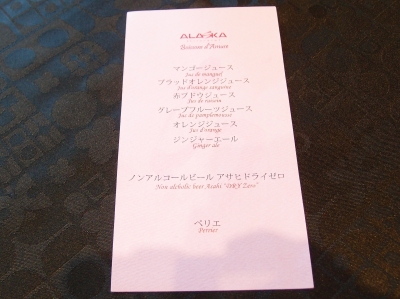 ALASKA
Boisson d'Avant
マンゴージュース
Jus de mangue
ブラッドオレンジジュース
Jus d'orange sanguine
赤ブドウジュース
Jus de raisin
グレープフルーツジュース
Jus de pamplemousse
オレンジジュース
Jus d'orange
ジンジャーエール
Ginger ale
ノンアルコールビール アサヒドライゼロ
Non alcholic beer Asahi "DRY Zero"
ペリエ
Perrier